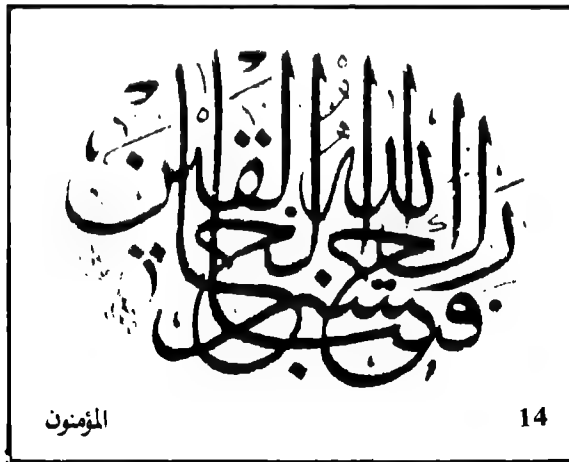 فتبارك الله أحسن الخالقين
المؤمنون
14